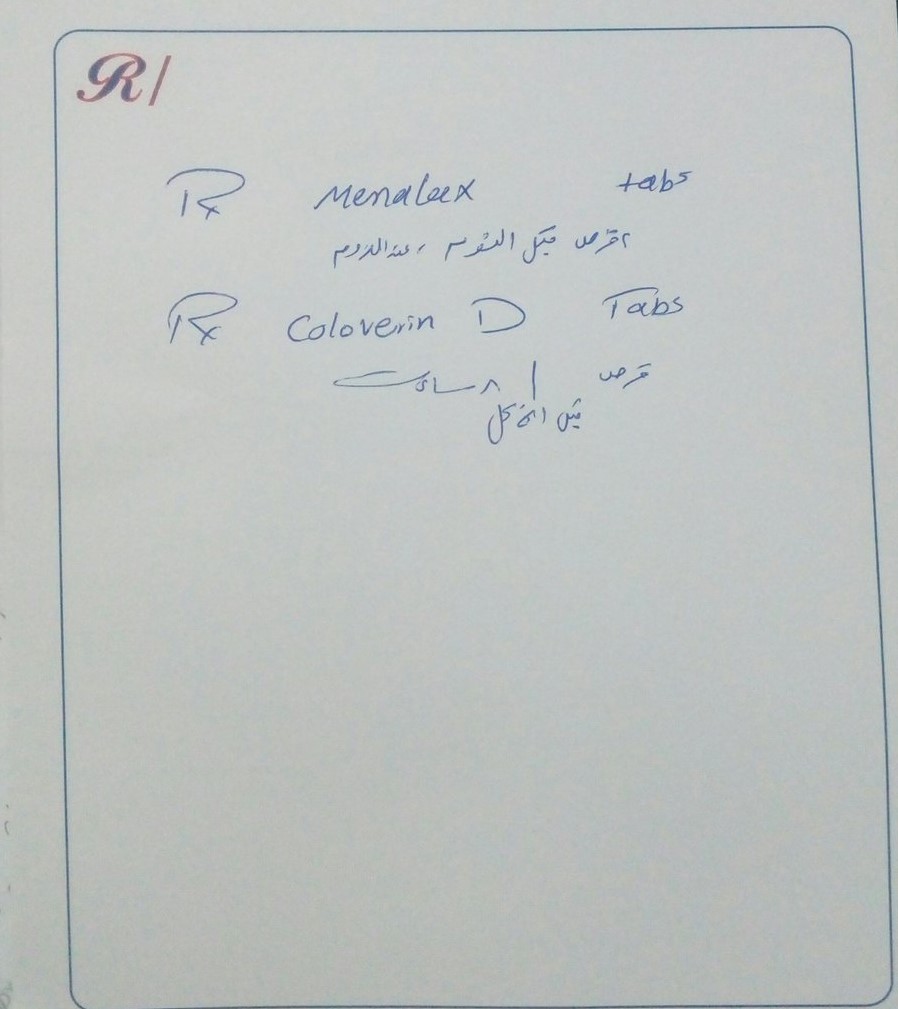 R/
Rx Menalax tabs
٢ قرص قبل النوم، عند اللزوم
Rx Coloverin D Tabs
قرص / ٨ ساعات
قبل الأكل